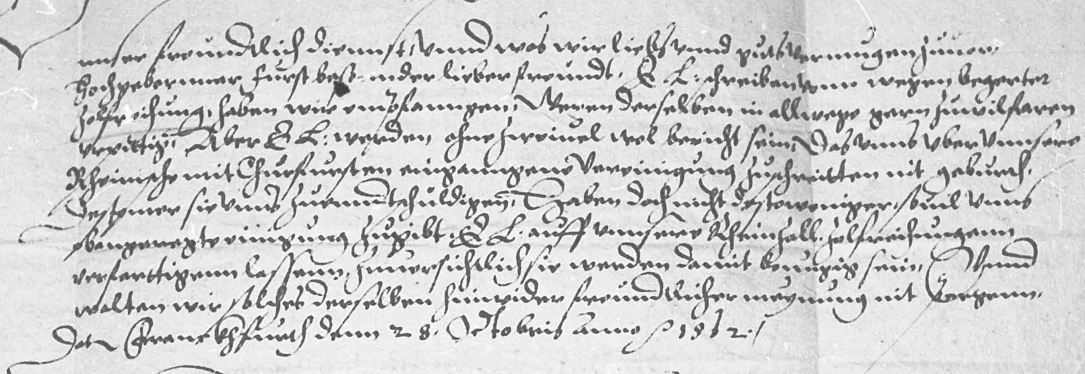 unser freundtlich diennst, unnd was wir liebs unnd guts vermugen zuuor,
Hochgebornner Furst besonnder lieber freundt, E. L. schreiben unns wegen begerter
Zolfreihung, haben wir empfanngen, Weren derselben in allwege gern zuwilfaren
urpittig, Aber E. L. werden ohne zweiuel wol bericht sein, Das unns uber unnsere
Rheinische mit Churfursten eingangene vereinigung zuschreitten nit geburth,
Haben doch nicht destoweniger, souil unns
obangeregte einigung zugibt, E. L. auff unnsere Rheinzoll, Zolfreihungenn
verfarttigenn lassenn, zuuersichtlich sie werden damit benugig sein, Unnd
wolten wir solches derselben hinwider freundtlicher meynung nit bergenn,
Dat. Franckhfurth denn 28. Octobris Anno